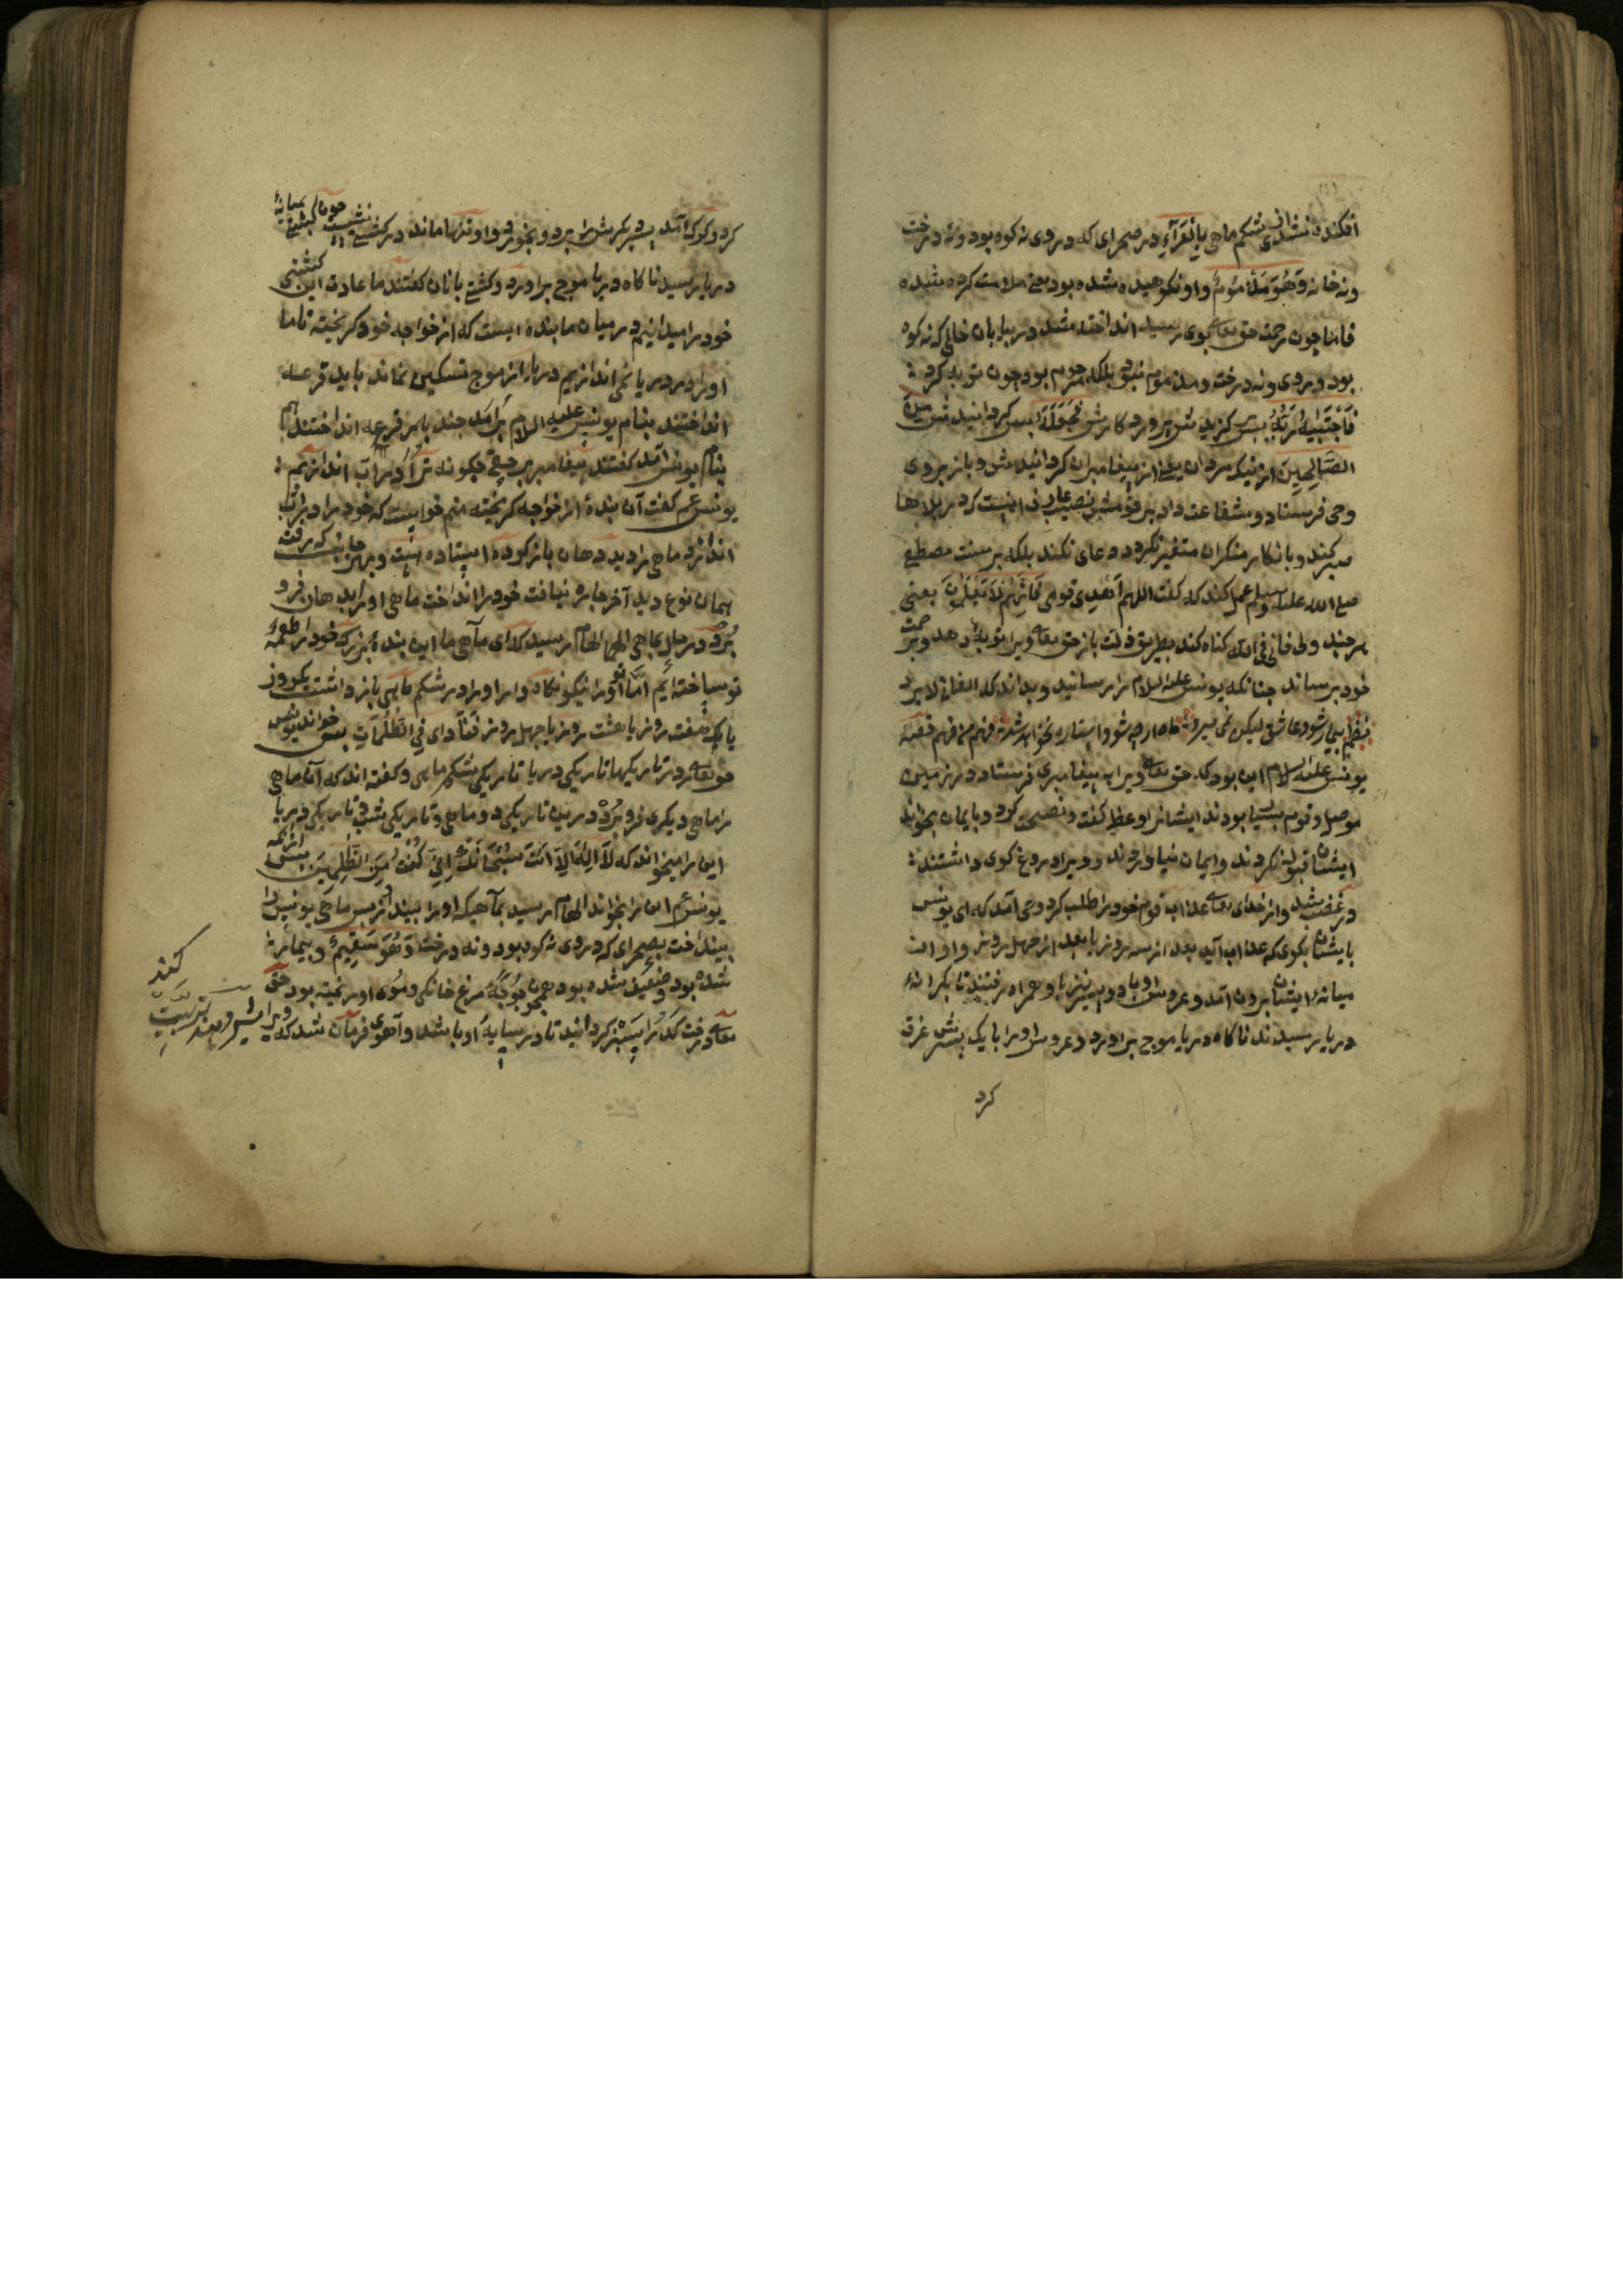 افکنده نشدی از شکم ماهی بِالْعَرَآءِ در صحرای که در وی نه کوه بود و نه درخت
ونه خانه وَهُوَ مَذْمُومٌ واو نکوهیده شده بود یعنی ملامت کرده شده
فاما چون رحمت حق تعالی بوی رسید انداخته شد در بیابان خالی که نه کوه
بود در وی ونه درخت ومذموم نبود بلکه مرحوم بود چون توبه کرد
فَاجْتَبٰیهُ رَبُّهُ پس گزیدش پروردگارش فَجَعَلَهُ پس گردانیدش مِنَ
الصَّالِحِینَ از نیک مردان یعنی از پیغامبران گردانیدش و باز بروی
وحی فرستاد و شفاعت داد بر قومش نصیب عارف اینست که در بلاها
صبر کند و بانکار منکران متغیر نگردد و دعای نکند بلکه بر سنت مصطفی
صلی الله علیه وسلم عمل کند که گفت اللهم اهْدِ قومی فَاِنَّهُمْ لَا یَعْلَمُونَ یعنی
هر چند ولی فانی فی الله گناه کند بطریق زلت باز حق تعالی ویرا توبه دهد و برحمت
خود برساند چنانکه یونس علیه السلام را رسانید و بداند که الفانی لا یرد
نظم بیمار شود عاشق لیکن نمی میرد ماه ارچه شود استاره نخواهد شد فهم من فهم قصه
یونس علیه السلام این بود که حق تعالی ویرا به پیغامبری فرستاد در زمین
موصل وقوم بسیار بودند ایشانرا وعظ گفت و نصیحت کرد و بایمان بخواند
ایشان قبول نکردند وایمان نیاوردند و ویرا دروغ گوی داشتند
در غضب شد و از خدای تعالی عذاب قوم خود را طلب کرد وحی آمد که ای یونس
بایشان بگوی که عذاب آید بعد از سه روز یا بعد از چهل روز و او از
میانهٔ ایشان برون آمد و عروس او با دو پسر نیز با و همراه رفتند تا بکرانهٔ
دریا رسیدند ناگاه دریا موج برآورد و عروس او را با یک پسرش غرق
کرد
کرد و گرگ آمد و پسر دیگرش را ببرد و بخورد و او تنها ماند در کشتی نشست چون کشتی بمیانهٔ
دریا رسید ناگاه دریا موج برآورد و کشتی بانان گفتند ما عادت این کشتی
خود را میدانیم در میان ما بنده ایست که از خواجه خود گریخته تا ما
او را در دریا نمی اندازیم دریا را از موج تسکین نماند باید قرعه
انداختند بنام یونس علیه السلام برآمد چند بار قرعه انداختند هم
بنام یونس آمد گفتند پیغامبر بر حقی چگونه ترا در آب اندازیم
یونس عم گفت آن بندهٔ از خواجه گریخته منم خواست که خود را در آب
اندازد ماهی را دید دهان باز کرده ایستاده است و بهر جانب که رفت
همان نوع دید آخر چاره نیافت خود را انداخت ماهی او را بدهان فرو
بُرد در حال بماهی الهام رسید که ای ماهی ما این بندهٔ بزرک خود را طعمهٔ
تو نساخته ایم اما تو او را نیکو نگاه دار او را در شکم ماهی باز داشت یک روز
یا یک هفت روز یا هشت روز یا چهل روز فَنَادٰی فِی الظُّلُمَاتِ پس خواند یونس
حق تعالی را در تاریکیها تاریکی دریا تاریکی شکم ماهی و گفته اند که آن ماهی
را ماهی دیگری فرو بُرد درین تاریکی دو ماهی و تاریکی شب و تاریکی دریا
این را میخواند که لَا اِلٰهَ اِلَّا اَنْتَ سُبْحَانَکَ اِنِّی کُنْتُ مِنَ الظّٰلِمِینَ
یونس عم این را بخواند الهام رسید بماهی که او را بینداز پس ماهی یونس را
بینداخت بصحرای که در وی نه کوه بود ونه درخت وَهُوَ سَقِیمٌ و بیمار
شده بود و ضعیف شده بود همچون جوجهٔ مرغ خانگی و موی او ریخته بود حق
تعالی درخت کدو را سبز گردانید تا در سایهٔ او باشد و آهوی فرمان شد که ویرا شیر دهد
کند